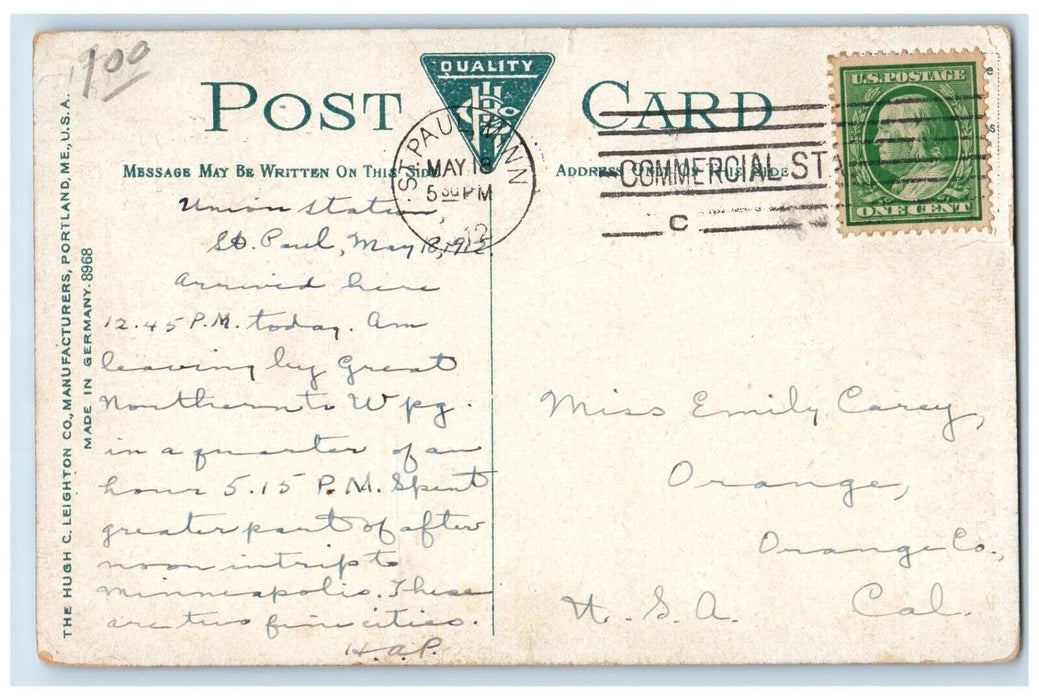 1.00
THE HUGH C. LEIGHTON CO., MANUFACTURERS, PORTLAND, ME., U.S.A.
MADE IN GERMANY. 8968
QUALITY
POST CARD
MESSAGE MAY BE WRITTEN ON THIS SIDE
ADDRESS ONLY ON THIS SIDE
ST. PAUL, MINN
MAY 18
5 30 PM
12
COMMERCIAL STA
C
U.S. POSTAGE
ONE CENT
Union Station,
St. Paul, May 18, 1912.
Arrived here
12.45 P.M. today. Am
leaving by Great
Northern to Wpg.
in a quarter of an
hour 5.15 P.M. Spent
greater part of after
noon in trip to
Minneapolis. These
are two fine cities.
H.A.P.
Miss Emily Carey,
Orange,
Orange Co.,
Cal.
U.S.A.